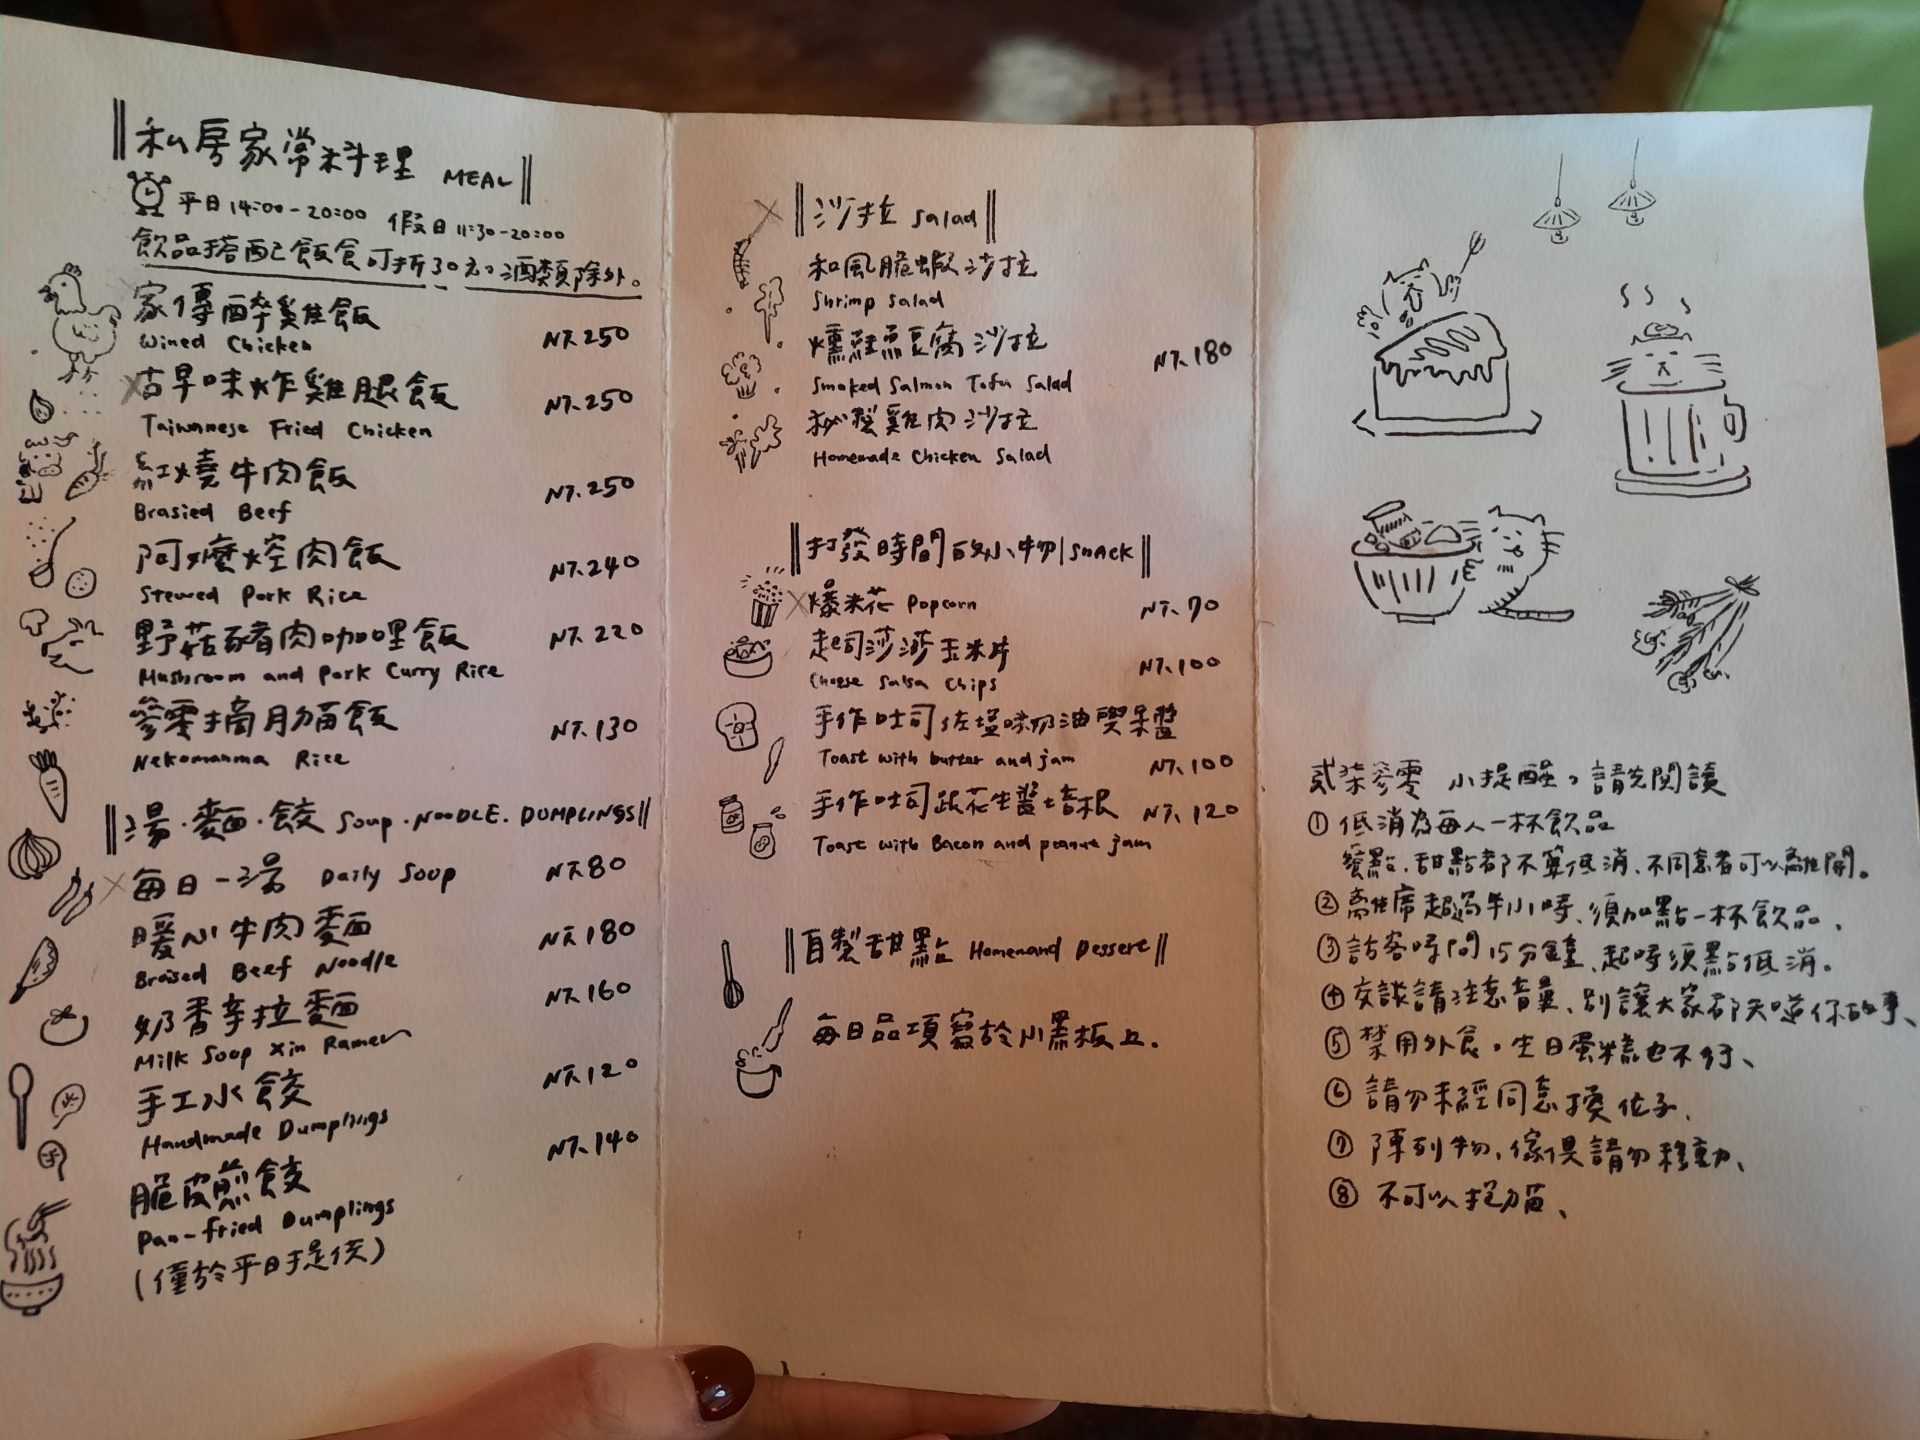 私房家常料理 MEAL
平日14:00-20:00 假日11:30-20:00
飲品搭配飯食可折30元。酒類除外。
家傳醉雞飯 NT.250
Wined Chicken
古早味炸雞腿飯 NT.250
Taiwanese Fried Chicken
紅燒牛肉飯 NT.250
Brasied Beef
阿嬤焢肉飯 NT.240
Stewed Pork Rice
野菇豬肉咖哩飯 NT.220
Mushroom and Pork Curry Rice
參零摘肋貓飯 NT.130
Nekomanma Rice
湯·麵·餃 Soup.NOODLE.DUMPLINGS
每日一湯 Daily Soup NT.80
暖心牛肉麵 NT.180
Braised Beef Noodle
奶香辛拉麵 NT.160
Milk Soup Xin Ramen
手工水餃 NT.120
Handmade Dumplings
脆皮煎餃 NT.140
Pan-fried Dumplings
(僅於平日提供)
沙拉 Salad
和風脆蝦沙拉
Shrimp Salad
燻鮭魚豆腐沙拉 NT.180
Smoked Salmon Tofu Salad
秘製雞肉沙拉
Homemade Chicken Salad
打發時間的小物 | SNACK
爆米花 Popcorn NT.70
起司莎莎玉米片 NT.100
Cheese Salsa Chips
手作吐司佐塩味奶油與果醬
Toast with butter and jam NT.100
手作吐司跟花生醬培根 NT.120
Toast with Bacon and peanut jam
自製甜點 Homemand Dessert
每日品項寫於小黑板上.
貳柒參零 小提醒。請先閱讀
① 低消為每人一杯飲品
餐點、甜點都不算低消、不同意者可以離開。
② 離席超過半小時、須加點一杯飲品、
③ 訪客時間15分鐘、超時須點低消。
④ 交談請注意音量、別讓大家都知道你的故事、
⑤ 禁用外食。生日蛋糕也不行、
⑥ 請勿未經同意換位子、
⑦ 陳列物、傢俱請勿移動、
⑧ 不可以抱貓、